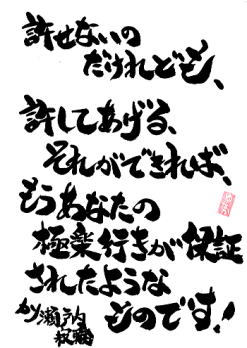 許せないの
だけれども、
許してあげる、
それができれば、
もうあなたの
極楽行きが保証
されたような
ものです!
瀬戸内
寂聴